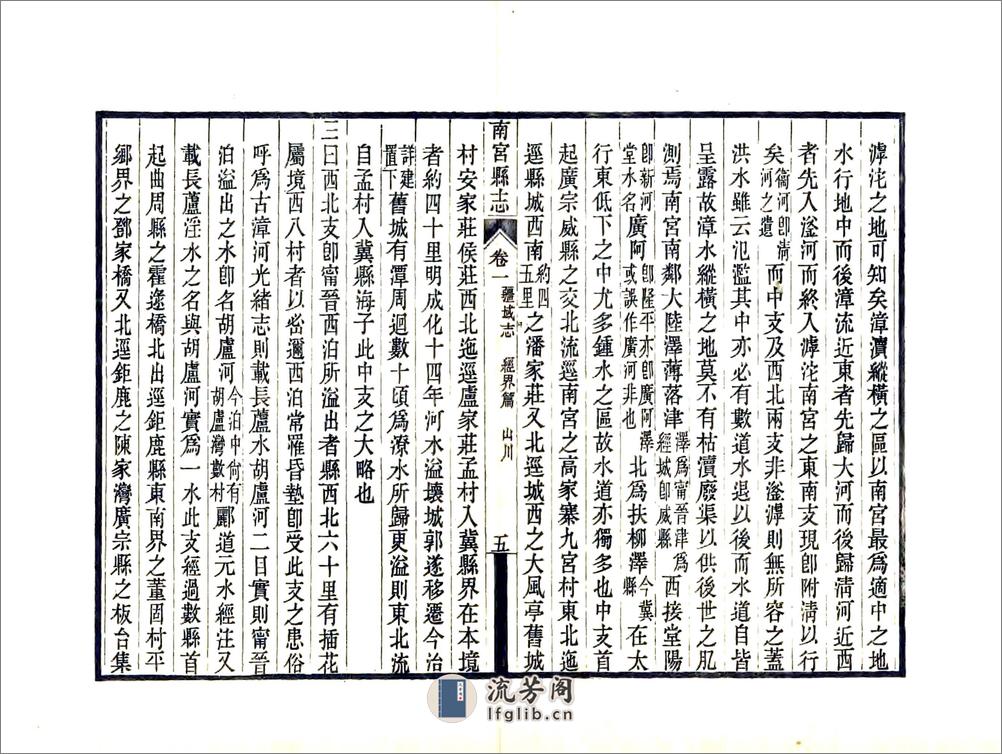 滹沱之地可知矣漳瀆縱橫之區以南宮最爲適中之地
水行地中而後漳流近東者先歸大河而後歸淸河近西
者先入滏河而終入滹沱南宮之東南支現卽附淸以行
矣衞河卽淸河之遺而中支及西北兩支非滏滹則無所容之蓋
洪水雖云氾濫其中亦必有數道水退以後而水道自皆
呈露故漳水縱橫之地莫不有枯瀆廢渠以供後世之肊
測焉南宮南鄰大陸澤薄落津澤爲甯晉津爲經城卽威縣西接堂陽
卽新河堂水名廣阿卽隆平亦卽廣阿澤或誤作廣河非也北爲扶柳澤今冀縣在太
行東低下之中尤多鍾水之區故水道亦獨多也中支首
起廣宗威縣之交北流逕南宮之高家寨九宮村東北迤
逕縣城西南約四五里之潘家莊又北逕城西之大風亭舊城
南宮縣志 卷一 疆域志 經界篇 山川 五
村安家莊侯莊西北迤逕盧家莊孟村入冀縣界在本境
者約四十里明成化十四年河水溢壞城郭遂移遷今治
詳建置下舊城有潭周迴數十頃爲潦水所歸更溢則東北流
自孟村入冀縣海子此中支之大略也
三曰西北支卽甯晉西泊所溢出者縣西北六十里有插花
屬境西八村者以密邇西泊常罹昏墊卽受此支之患俗
呼爲古漳河光緖志則載長蘆水胡盧河二目實則甯晉
泊溢出之水卽名胡盧河今泊中尙有胡盧灣數村酈道元水經注又
載長蘆淫水之名與胡盧河實爲一水此支經過數縣首
起曲周縣之霍遼橋北出逕鉅鹿縣東南界之董固村平
鄕界之鄧家橋又北逕鉅鹿之陳家灣廣宗縣之板台集
流芳阁
lfglib.cn